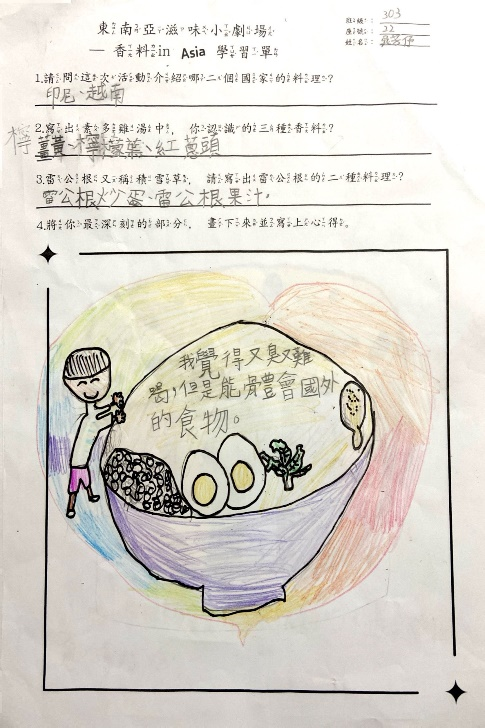 東南亞滋味小劇場
— 香料in Asia 學習單
班級: 303
座號: 22
姓名:
1.請問這次活動介紹哪二個國家的料理?
印尼、越南
2.寫出素多雞湯中, 你認識的三種香料?
薑黃、檸檬葉、紅蔥頭
3.雷公根又稱積雪草, 請寫出雷公根的二種料理?
雷公根炒蛋、雷公根果汁.
4.將你最深刻的部分, 畫下來並寫上心得。
我覺得又臭又難
喝,但是能體會國外
的食物。